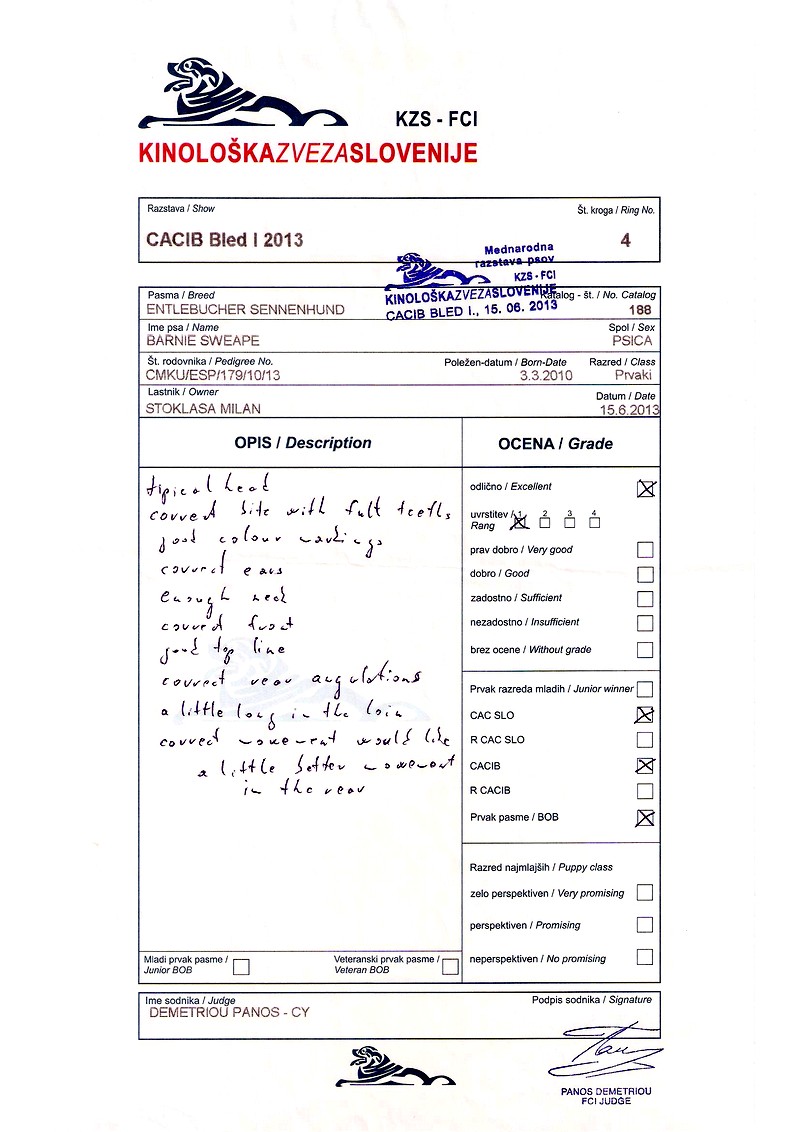 KZS - FCI
KINOLOŠKAZVEZASLOVENIJE
Razstava / Show
Št. kroga / Ring No.
CACIB Bled I 2013
4
Mednarodna
razstava psov
KZS - FCI
KINOLOŠKAZVEZASLOVENIJE
CACIB BLED I., 15. 06. 2013
Pasma / Breed
Katalog - št. / No. Catalog
ENTLEBUCHER SENNENHUND
188
Ime psa / Name
Spol / Sex
BARNIE SWEAPE
PSICA
Št. rodovnika / Pedigree No.
Poležen-datum / Born-Date
Razred / Class
CMKU/ESP/179/10/13
3.3.2010
Prvaki
Lastnik / Owner
Datum / Date
STOKLASA MILAN
15.6.2013
OPIS / Description
OCENA / Grade
tipical head
correct bite with full teeths
good colour markings
correct ears
enough neck
correct front
good top line
correct rear angulations
a little long in the loin
correct movement would like
a little better movement
in the rear
odlično / Excellent
uvrstitev / Rang
1 2 3 4
prav dobro / Very good
dobro / Good
zadostno / Sufficient
nezadostno / Insufficient
brez ocene / Without grade
Prvak razreda mladih / Junior winner
CAC SLO
R CAC SLO
CACIB
R CACIB
Prvak pasme / BOB
Razred najmlajših / Puppy class
zelo perspektiven / Very promising
perspektiven / Promising
neperspektiven / No promising
Mladi prvak pasme /
Junior BOB
Veteranski prvak pasme /
Veteran BOB
Ime sodnika / Judge
Podpis sodnika / Signature
DEMETRIOU PANOS - CY
PANOS DEMETRIOU
FCI JUDGE